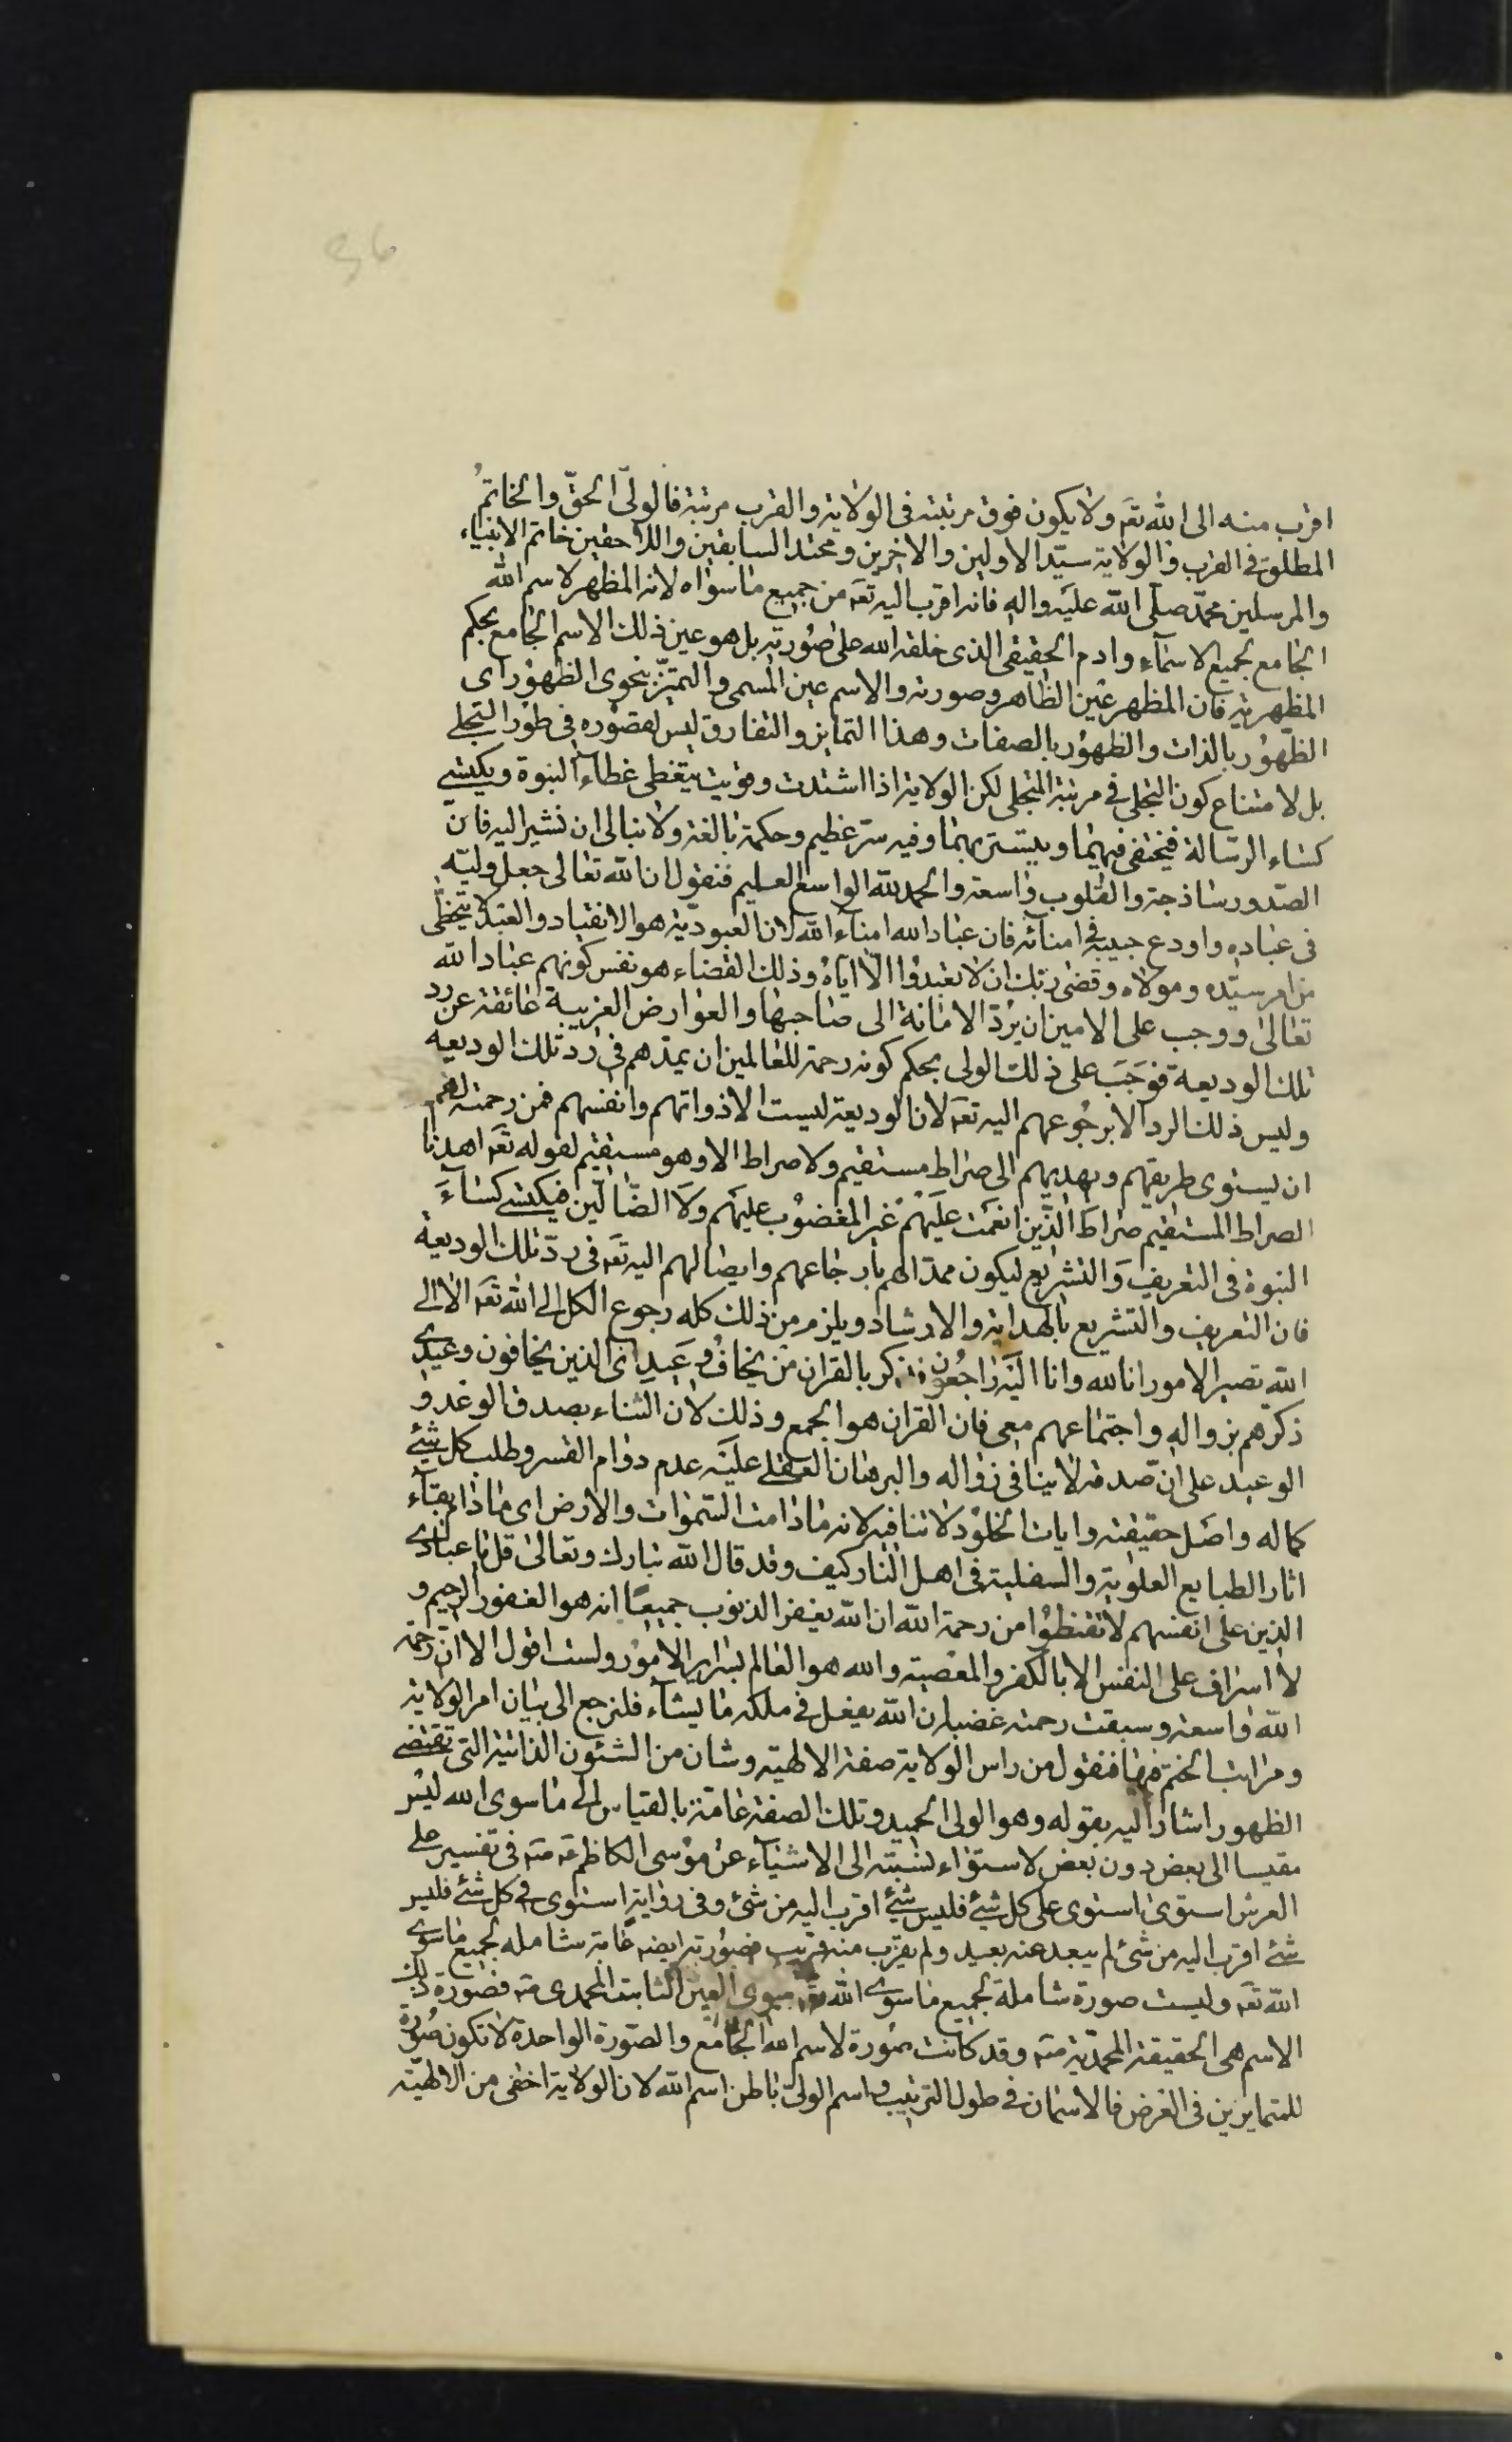 36
اقرب منه الى الله تعه ولا يكون فوق مرتبته فى الولاية والقرب مرتبة فالولىّ الحقّ والخاتمُ
المطلق فى القرب والولاية سيّد الاولين والاخرين ومحتد السابقين واللاحقين خاتم الانبياء
والمرسلين محمّد صلّى الله عليه واله فانه اقرب اليه تعه من جميع ما سواه لانه المظهر لاسم الله
الجامع لجميع الاسماء وادم الحقيقى الذى خلقه الله على صورته بل هو عين ذلك الاسم الجامع بحكم
المظهرية فان المظهر عين الظاهر وصورته والاسم عين المسمى والتميّز بنحوى الظهور اى
الظهور بالذات والظهور بالصفات وهذا التمايز والتفارق ليس لقصوره فى طور التجلى
بل لامتناع كون التجلى فى مرتبة المتجلى لكن الولاية اذا اشتدت وقويت يتغطى غطاء النبوة ويكتسى
كساء الرسالة فيختفى فيهما ويستتر بهما وفيه سرّ عظيم وحكمة بالغة ولا نبالى ان نشير اليه فان
الصّدور ساذجة والقلوب واسعة والحمد لله الواسع العليم فنقول ان الله تعالى جعل وليّه
فى عباده واودع حبيبه فى امنائه فان عباد الله امناء الله لان العبوديّة هو الانقياد والعبد لا يتخطّى
من امر سيّده ومولاه وقضى ربّك ان لا تعبدوا الّا ايّاهُ وذلك القضاء هو نفس كونهم عباد الله
تعالى ووجب على الامين ان يردّ الامانة الى صاحبها والعوارض الغريبة عائقة عن رد
تلك الوديعة فوَجَبَ على ذلك الولى بحكم كونه رحمة للعالمين ان يمدّهم فى ردّ تلك الوديعه
وليس ذلك الرد الا برجوعهم اليه تعه لان الوديعة ليست الا ذواتهم وانفسهم فمن رحمته لهم
ان يستوى طريقهم ويهديهم الى صراط مستقيم ولا صراط الا وهو مستقيم لقوله تعه اهدنا
الصراط المستقيم صراط الّذين انعمت عليَهْم غير المغضوب عليهم ولا الضّالّين فيكتسى كساء
النبوة فى التعريف والتشريع ليكون ممدّا لهم بارجاعهم وايصالهم اليه تعه فى ردّ تلك الوديعة
فان التعريف والتشريع بالهداية والارشاد ويلزم من ذلك كله رجوع الكل الى الله تعه الا الى
الله تصير الامور انا لله وانا اليه راجعون فذكر بالقران من يخافُ وَعيدِ اى الذين يخافون وعيدى
ذكرهم بزواله واجتماعهم معى فان القران هو الجمع وذلك لان الثناء بصدق الوعد و
الوعيد على انّ صدقه لا ينافى زواله والبرهان العقلى عليه عدم دوام القسر وطلب كل شئ
كماله واصل حقيقته وايات الخلود لا تنافيه لانه ما دامت السّموات والارض اى ما دام بقاء
اثار الطبايع العلوية والسفلية فى اهل النار كيف وقد قال الله تبارك وتعالى قل يا عبادى
الذين على انفسهم لا تقنطوا من رحمة الله ان الله يغفر الذنوب جميعًا انه هو الغفور الرحيم و
لا اسراف على النفس الا بالكفر والمعصية والله هو العالم بسراير الامور ولست اقول الا انّ رحمة
الله واسعة وسبقت رحمته غضبه ان الله يفعل فى ملكه ما يشاء فلنرجع الى بيان امر الولاية
ومراتب الختم فيها فنقول من راس الولاية صفة الالهية وشان من الشئون الذاتية التى تقتضى
الظهور اشار اليه بقوله وهو الولى الحميد وتلك الصفة عامة بالقياس الى ما سوى الله ليس
مقيسا الى بعض دون بعض لاستواء نسبته الى الاشياء عن موسى الكاظم عه فى تفسير على
العرش استوى استوى على كل شئ فليس شئ اقرب اليه من شئ وفى رواية استوى فى كل شئ فليس
شئ اقرب اليه من شئ لم يبعد عنه بعيد ولم يقرب منه قريب فصورته ايضه عامة شامله لجميع ماسوى
الله تعه وليست صورة شاملة لجميع ماسوى الله تعه سوى العين الثابت المحمدى صه فصورة ذلك
الاسم هى الحقيقة المحمّدية صه وقد كانت صورة لاسم الله الجامع والصورة الواحدة لا تكون صورة
للمتمايزين فى العرض فالاسمان فى طول الترتيب واسم الولىّ باطن اسم الله لان الولاية اخفى من الالهيّة